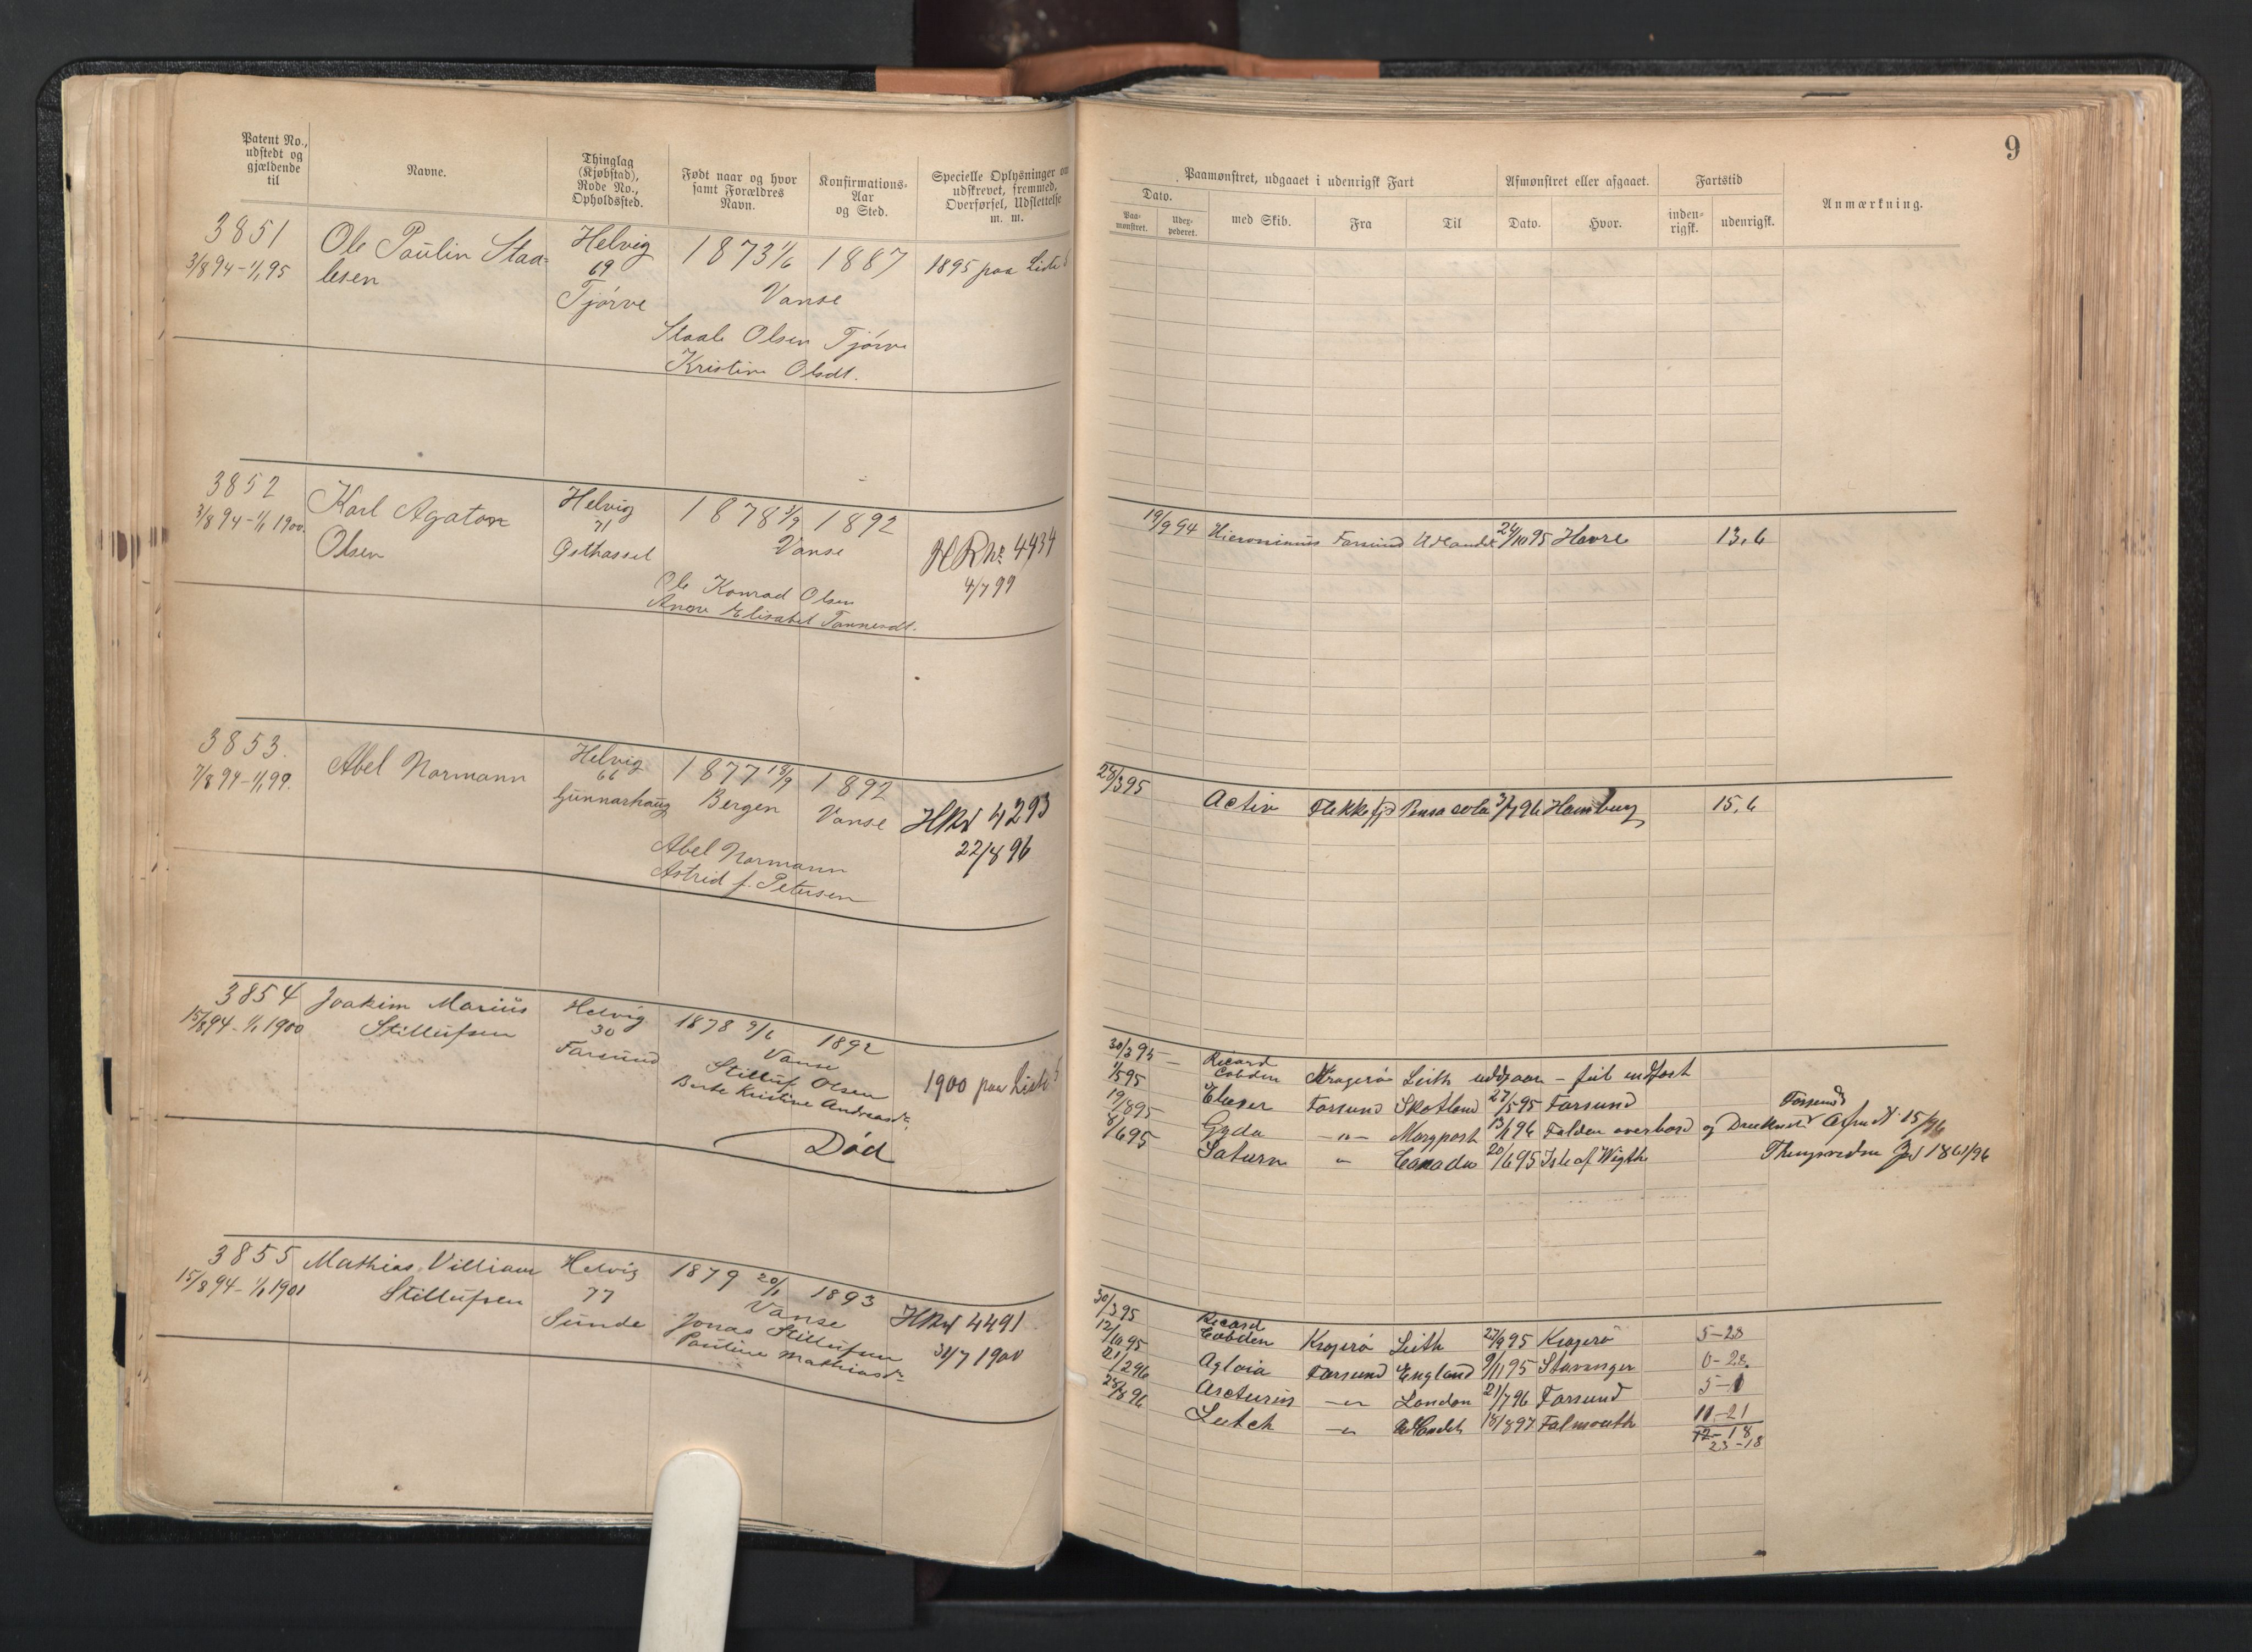 Patent No.,
udstedt og
gjældende
til
Navne.
Thinglag
(Kjøbstad),
Rode No.,
Opholdssted.
Født naar og hvor
samt Forældres
Navn.
Konfirmations-
Aar
og Sted.
Specielle Oplysninger om
udskrevet, fremmed,
Overførsel, Udslettelse
m. m.
3851
3/8 94 - 1/1 95
Ole Paulin Staa-
lesen
Helvig
69
Tjörve
1873 1/6
1887
Vanse
Staale Olsen Tjörve
Kristine Olsdt.
1895 paa Liste
3852
3/8 94 - 1/1 1900.
Karl Agaton
Olsen
Helvig
71
Østhassel
1878 3/9
1892
Vanse
Ole Konrad Olsen
Anne Elisabet Tønnesdt.
HR Nr 4434
4/7 99
3853.
7/8 94 - 1/1 99.
Abel Normann
Helvig
66
Gunnarshaug
1877 18/9
Bergen
1892
Vanse
Abel Normann
Astrid f. Petersen
HRN 4293
22/8 96
3854
15/8 94 - 1/1 1900
Joakim Marius
Stillufsen
Helvig
30
Farsund
1878 9/6
1892
Vanse
Stilluf Olsen
Berte Kristine Andreasdr.
Död
1900 paa Liste
3855
15/8 94 - 1/1 1901
Mathias Villiam
Stillufsen
Helvig
77
Sunde
1879 20/1
1893
Vanse
Jonas Stillufsen
Pauline Mathiasdr
HRN 4491
31/7 1900
9
Paamønstret, udgaaet i udenrigsk Fart
Afmønstret eller afgaaet.
Fartstid
Anmærkning.
Dato.
Paa-
mønstret.
Udex-
pederet.
med Skib.
Fra
Til
Dato.
Hvor.
inden-
rigsk.
udenrigsk.
19/9 94 Hieronimus Farsund Udlandet 24/10 95 Havre 13,6
28/3 95 Activ Flekkefj Pensacola 3/7 96 Hamburg 15,6
30/3 95 — Ricard
Cobden Kragerø Leith
1/5 95 Elieser Farsund Skotland 27/5 95 Farsund
19/8 95 Gyda — " — 13/1 96 Falden overbord og Druknet
8/6 95 Saturn " Canada 20/6 95 Isle of Wigth
Farsunds
15/96
186/96
30/3 95 Ricard
Cobden Kragerø Leith 27/9 95 Kragerø 5-28
12/10 95 Aglaia Farsund England 9/11 95 Stavanger 0-28.
21/2 96 Arcturus — " London 21/7 96 Farsund 5-1
28/8 96 Leitch — " Udlandet 18/8 97 Falmouth 11-21
12-18
23-18